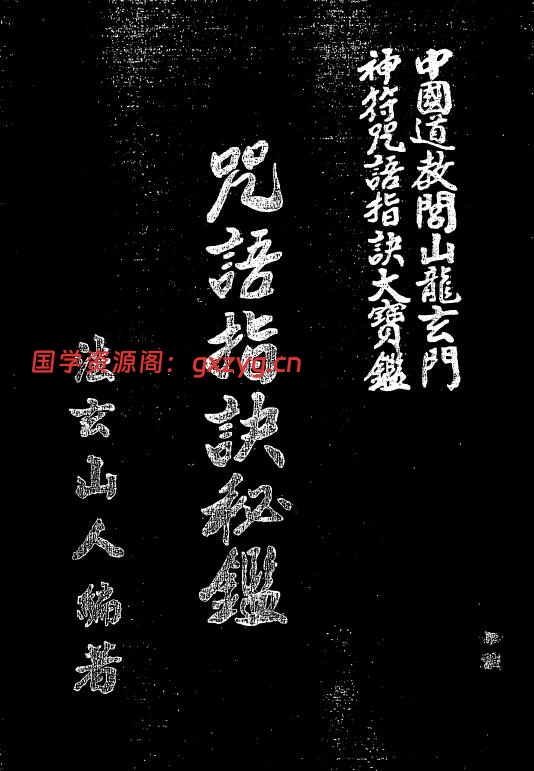 中國道教閭山龍玄門
神符咒語指訣大寶鑑
咒語指訣秘鑑
法玄山人編著
国学资源阁：gxzyg.cn